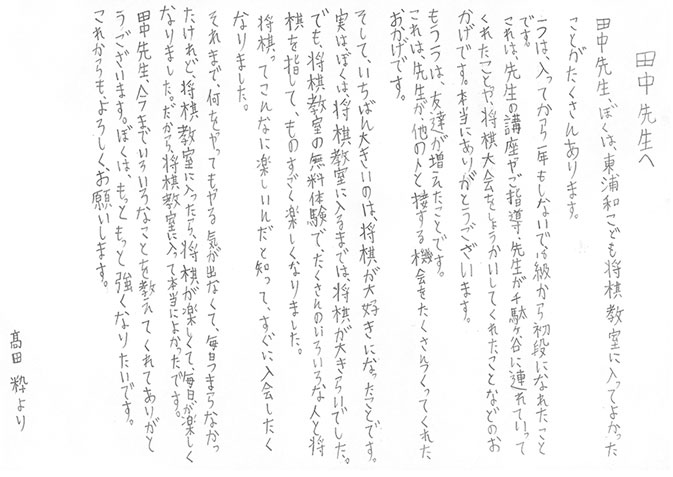 田中先生へ
田中先生、ぼくは、東浦和こども将棋教室に入ってよかった
ことがたくさんあります。
一つは、入ってから一年もしないで、級から初段になれたこと
です。
これは、先生の講座やご指導、先生が千駄ヶ谷に連れていって
くれたことや、将棋大会をしょうかいしてくれたことなどのお
かげです。本当にありがとうございます。
もう一つは、友達が増えたことです。
これは、先生が、他の人と接する機会をたくさんつくってくれた
おかげです。
そして、いちばん大きいのは、将棋が大好きになったことです。
実は、ぼくは、将棋教室に入るまでは、将棋が大きらいでした。
でも、将棋教室の無料体験で、たくさんのいろいろな人と将
棋を指して、ものすごく楽しくなりました。
将棋ってこんなに楽しいんだと知って、すぐに入会したく
なりました。
それまで、何をやってもやる気が出なくて、毎日つまらなかっ
たけれど、将棋教室に入ったら、将棋が楽しくて、毎日が楽しく
なりました。だから、将棋教室に入って本当によかったです。
田中先生、今までいろいろなことを教えてくれてありがと
うございます。ぼくは、もっともっと強くなりたいです。
これからも、よろしくお願いします。
髙田 粋より